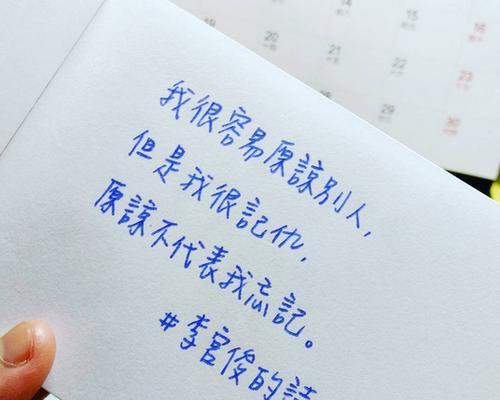 14 15 16
20 21 22 23
29 30
我很容易原諒別人,
但是我很記仇,
原諒不代表我忘記。
#李宮俊的詩